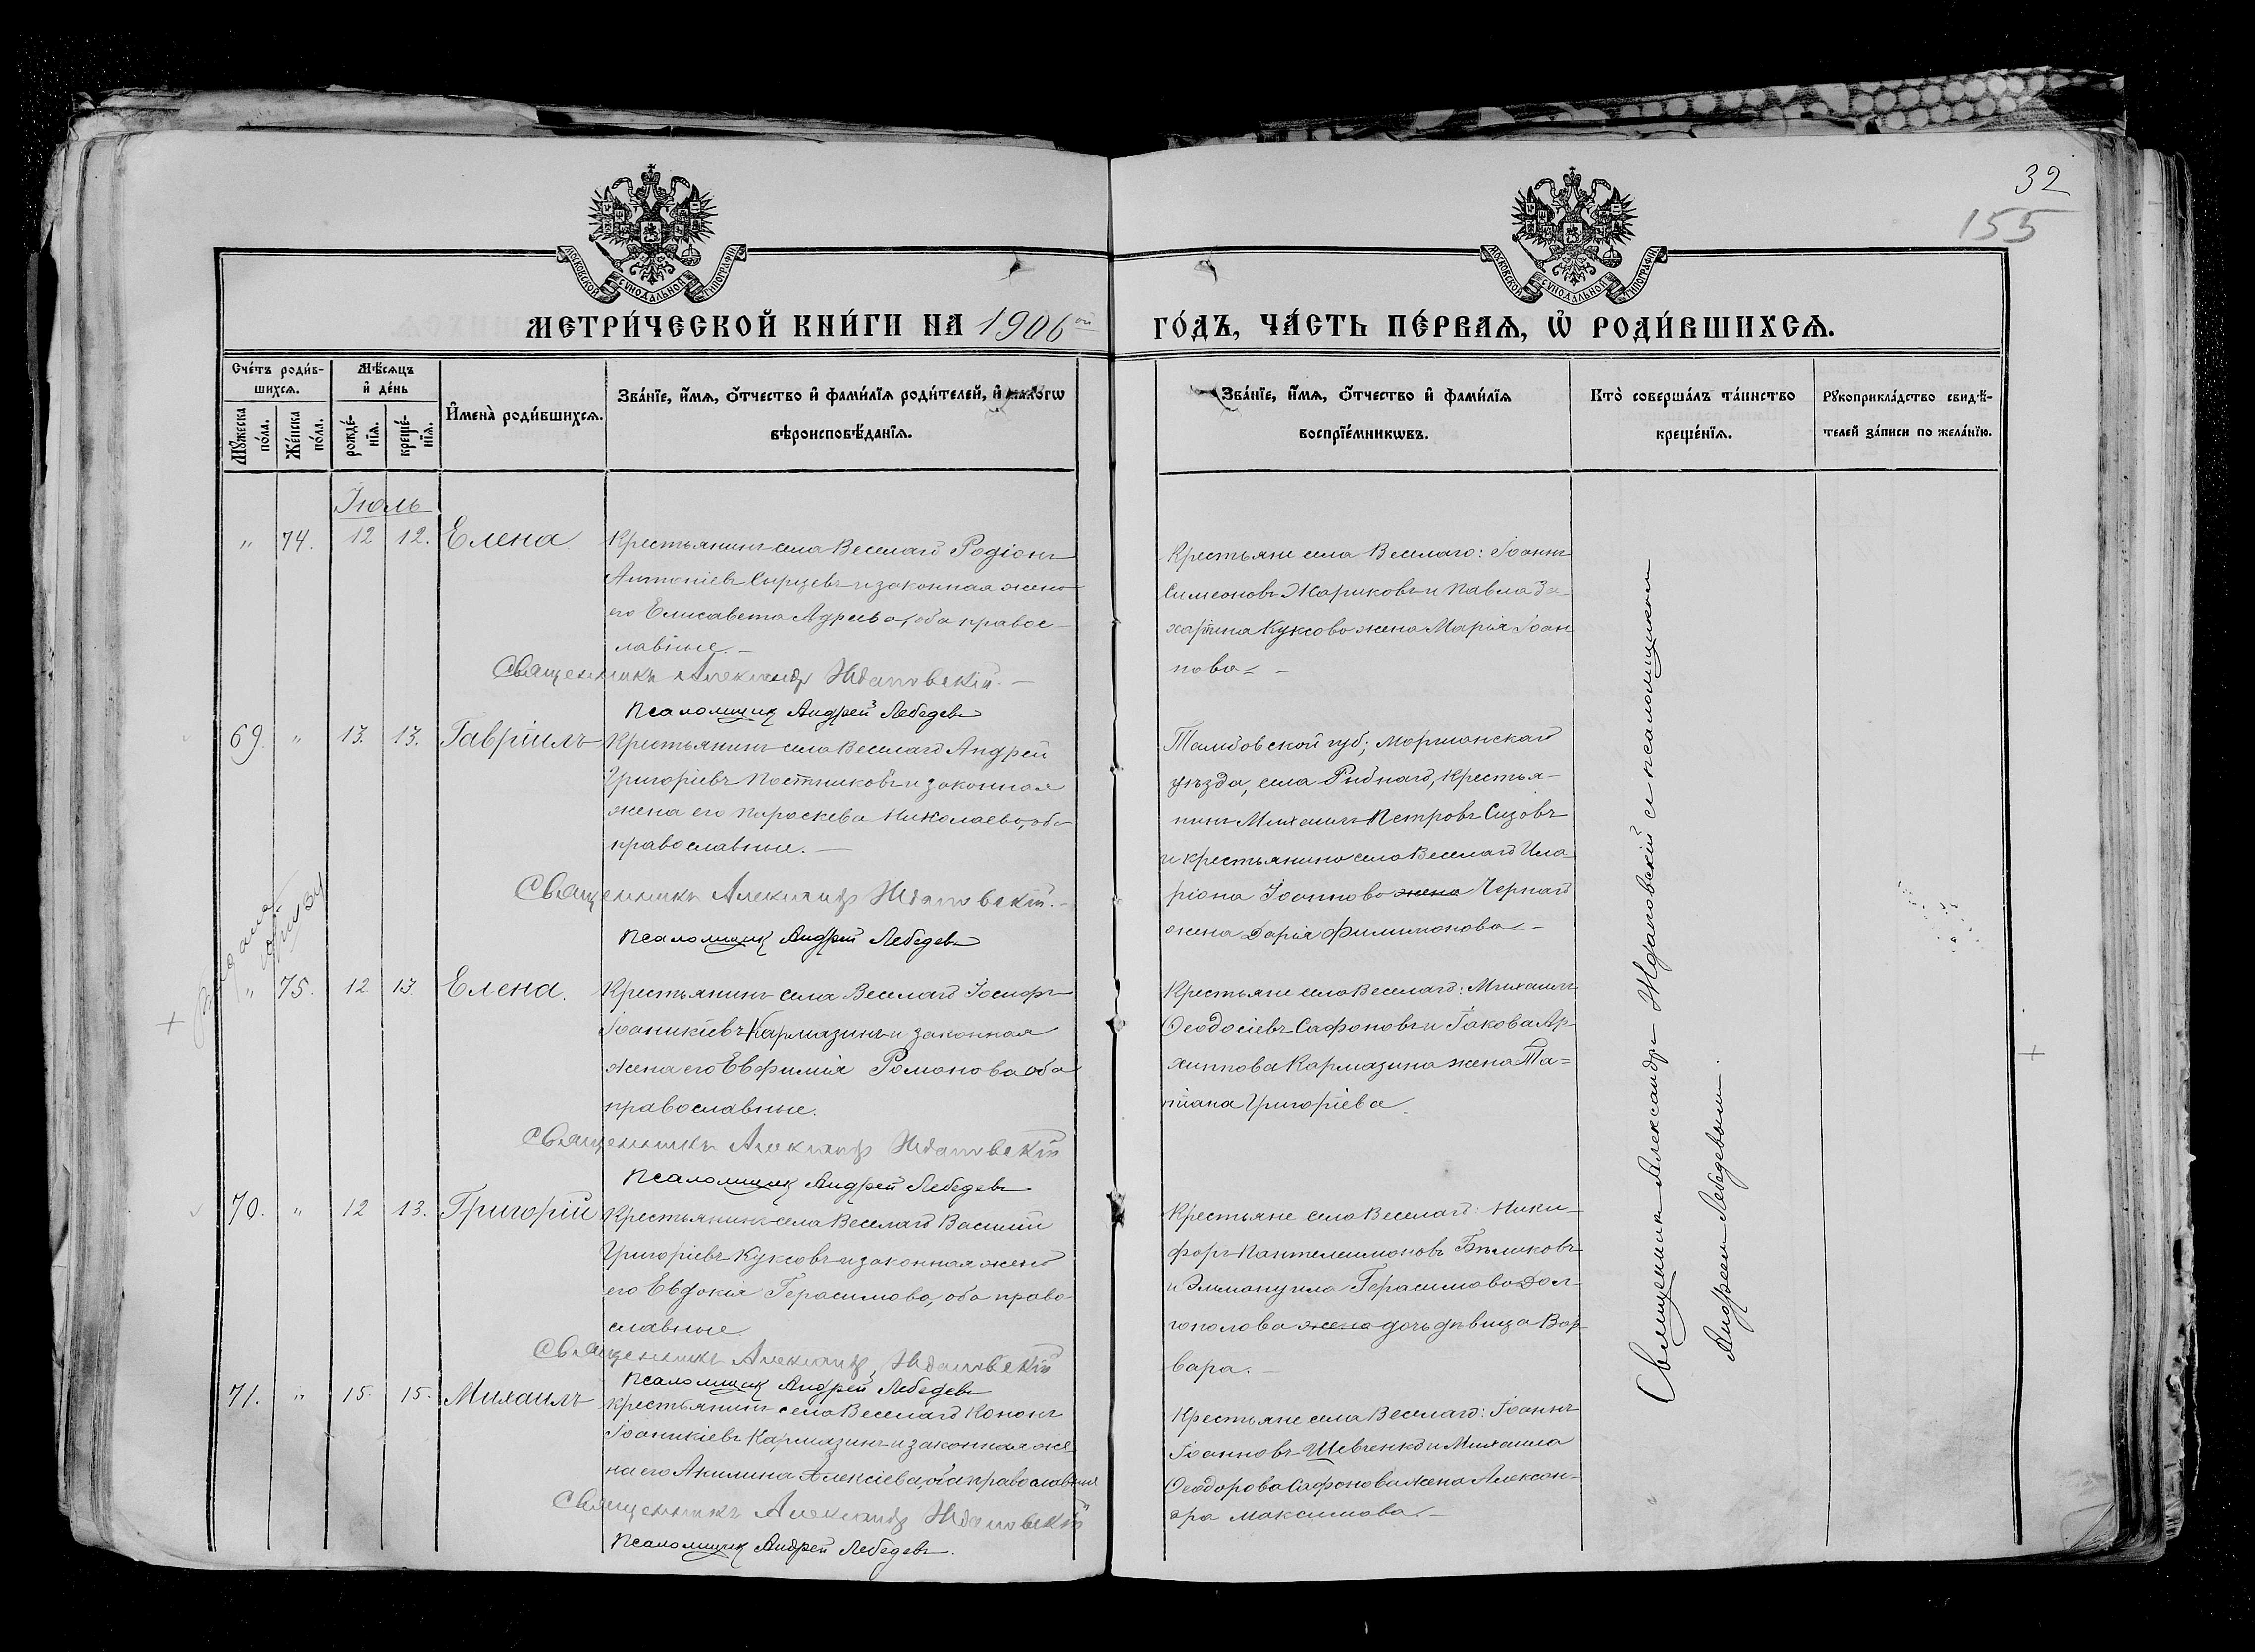 32
155
МОСКОВСКОЙ СУНОДАЛЬНОЙ ТИПОГРАФІИ
МОСКОВСКОЙ СУНОДАЛЬНОЙ ТИПОГРАФІИ
МЕТРИ́ЧЕСКОЙ КНИ́ГИ НА 1906ой
ГО́ДЪ, ЧА́СТЬ ПЕ́РВАѦ, Ѡ҆ РОДИ́ВШИХСѦ.
Сче́тъ роди́в-
шихсѧ.
Мꙋ́жеска по́ла.
Же́нска по́ла.
Мѣ́сѧцъ
и҆ де́нь
рожде́-
нїѧ.
креще́-
нїѧ.
И҆мена̀ роди́вшихсѧ.
Зва́нїе, и҆́мѧ, ѻ҆́тчество и҆ фами́лїѧ роди́телей, и҆ како́гѡ
вѣроисповѣ́данїѧ.
Зва́нїе, и҆́мѧ, ѻ҆́тчество и҆ фами́лїѧ
воспрїе́мникѡвъ.
Кто̀ соверша́лъ та́инство
креще́нїѧ.
Рꙋкоприкла́дство свидѣ́-
телей за́писи по жела́нїю.
Іюль
" 74. 12 12. Елена
Крестьянинъ села Веселаго Родіонъ
Антоніевъ и законная жена
его Елисавета Адреева, оба правос-
лавные. —
Священникъ Александр Ждановскій. —
Псаломщик Андрей Лебедевъ
Крестьяне села Веселаго: Іоаннъ
Симеоновъ Жариковъ и Павла За-
харіина Куксова жена Марія Іоан
нова —
69. " 13. 13. Гавріилъ
Крестьянинъ села Веселаго Андрей
Григоріевъ Постниковъ и законная
жена его Параскева Николаева, оба
православные. —
Священникъ Александр Ждановскій. —
Псаломщик Андрей Лебедевъ
Тамбовской губ; Моршанскаго
уѣзда, села Рыбнаго, Крестья-
нинъ Михаилъ Петровъ Сизовъ
и крестьянина села Веселаго Ила-
ріона Іоаннова жена Чернаго
жена Дарія Филимонова —
Выдана
" 75. 12. 13. Елена.
Крестьянинъ села Веселаго Іосифъ
Іоаникіевъ Кармазинъ и законная
жена его Евфимія Романова оба
православные.
Священникъ Александр Ждановскій
Псаломщик Андрей Лебедевъ
Крестьяне села Веселаго: Михаилъ
Ѳеодосіевъ Сафоновъ и Іакова Ар-
хиппова Кармазина жена Та=
тіана Григоріева.
70. " 12 13. Григорій
Крестьянинъ села Веселаго Василій
Григоріевъ Куксовъ и законная жена
его Евдокія Герасимова, оба право-
славные.
Священникъ Александр Ждановскій
Псаломщик Андрей Лебедевъ
Крестьяне села Веселаго: Ники-
форъ Пантелеимоновъ Бѣликовъ
и Эммануила Герасимова Дол-
гополова жена дочь дѣвица Вар-
вара. —
71. " 15. 15. Михаилъ
крестьянинъ села Веселаго Кононъ
Іоаникіевъ Кармазинъ и законная же-
на его Акилина Алексіева, оба православные
Священникъ Александр Ждановскій
Псаломщик Андрей Лебедевъ.
Крестьяне села Веселаго: Іоаннъ
Іоанновъ Шевченко и Михаила
Ѳеодорова Сафонова жена Алексан-
дра Максимова. —
Священник Александръ Ждановскій с псаломщиком
Андреем Лебедевым.